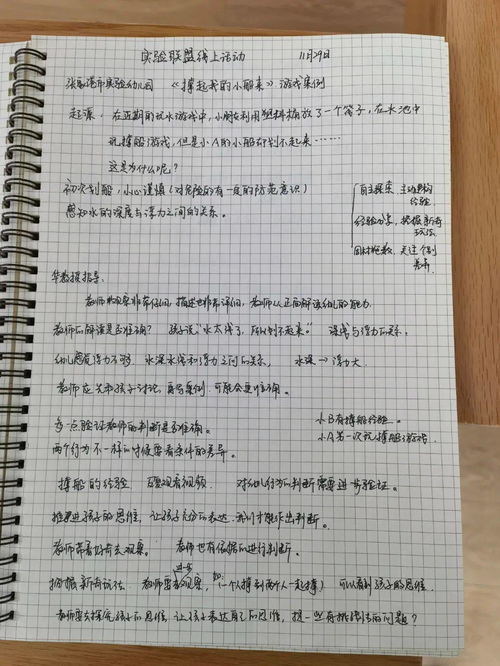 实验联盟线上活动 11月29日
张家港市实验幼儿园 《撑起我的小船来》游戏案例
起源：在近期的玩水游戏中，小朋友利用塑料桶放了一个筐子，在水池中
玩撑船游戏，但是小A的小船却划不起来……
这是为什么呢？
初次划船，小心谨慎（对危险的有一定的防范意识）
感知水的深度与浮力之间的关系。
自主探索 主动建构经验
经验分享，挖掘新奇玩法
因材施教，关注个别差异
华教授指导：
教师观察非常仔细，描述也非常详细，教师从正面解读幼儿的能力
教师的解读是否准确？ 孩子说“水太浅了，所以划不起来。” 深浅与浮力的关系。
幼儿感受浮力不够，水深水浅和浮力之间的关系， 水深→浮力大
教师应该和孩子讨论，再写案例，可能会更准确。
多一点验证教师的判断是否准确。 小B有撑船经验。
两个行为不一样的时候要看条件的差异。 小A第一次玩撑船游戏。
撑船的经验 要观看视频 对幼儿行为的判断需要进一步验证。
推进孩子的思维，让孩子充分的表达，我们才能作出判断。
教师带着好奇去观察。 教师也有依据的进行判断。
挖掘新有玩法 教师要进一步观察，如：（一个人撑到两个人一起撑） 可以看到孩子的思维
教师要去探究孩子的思维，让孩子表达自己的思维，提一些有挑战性的问题？